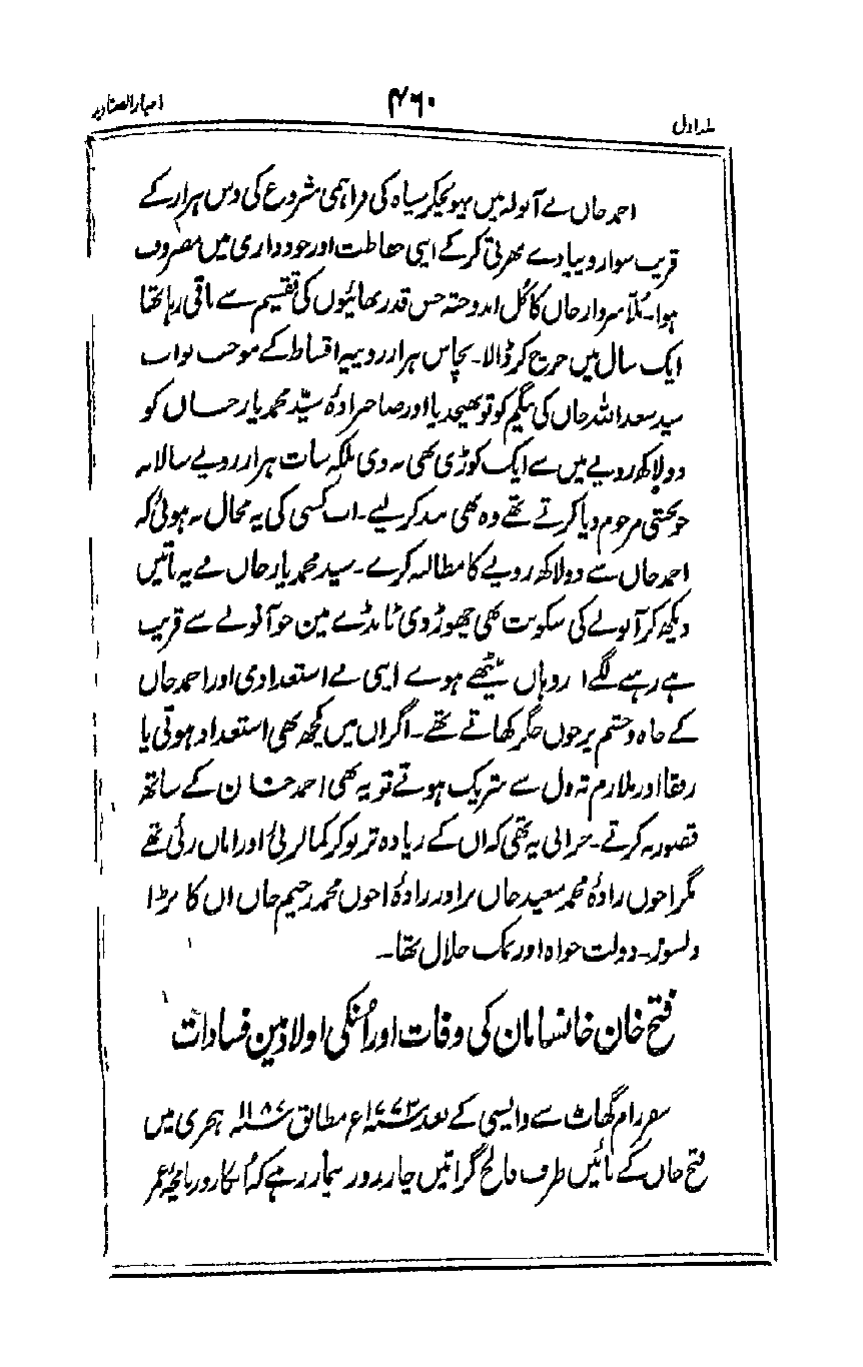 اخبار الصنادید
۴۶۰
جلد اول
احمد خاں نے آنولہ میں پہونچکر سپاہ کی فراہمی شروع کی دس ہزار کے
قریب سوار و پیادے بھرتی کر کے اپنی حفاظت اور خود داری میں مصروف
ہوا۔ ملّا سردار خاں کا کُل اندوختہ جس قدر بھائیوں کی تقسیم سے باقی رہا تھا
ایک سال میں خرچ کر ڈالا۔ پچاس ہزار روپیہ اقساط کے موجب نواب
سید سعد اللہ خاں کی بیگم کو تو بھیجدیا اور صاحبزادۂ سیّد محمد یار خاں کو
دو لاکھ روپے میں سے ایک کوڑی بھی نہ دی بلکہ سات ہزار روپے سالانہ
جو بخشی مرحوم دیا کرتے تھے وہ بھی بند کر لیے۔ اب کسی کی یہ مجال نہ ہوئی کہ
احمد خاں سے دو لاکھ روپے کا مطالبہ کرے۔ سید محمد یار خاں نے یہ باتیں
دیکھ کر آنولے کی سکونت بھی چھوڑ دی ٹانڈے مین جو آنولے سے قریب
ہے رہنے لگے اور وہاں بیٹھے ہوے اپنی بے استعدادی اور احمد خاں
کے جاہ و حشم پر خون جگر کھاتے تھے۔ اگر ان میں کچھ بھی استعداد ہوتی یا
رفقا اور ملازم تہ دل سے شریک ہوتے تو یہ بھی احمد خان کے ساتھ
قصور نہ کرتے۔ خرابی یہ تھی کہ ان کے زیادہ تر نوکر کمالزئی اور امان زئی تھے
مگر اخون زادۂ محمد سعید خاں برادر زادۂ اخون محمد رحیم خاں ان کا بڑا
دلسوز۔ دولت خواہ اور نمک حلال تھا۔
فتح خان خانسامان کی وفات اور اُنکی اولاد مین فسادات
سفر رام گھاٹ سے واپسی کے بعد ۱۷۷۳ء مطابق ۱۱۸۷ ہجری میں
فتح خاں کے بائیں طرف فالج گرا تین چار روز بیمار رہے کہ اُنکا روزنامچۂ عمر